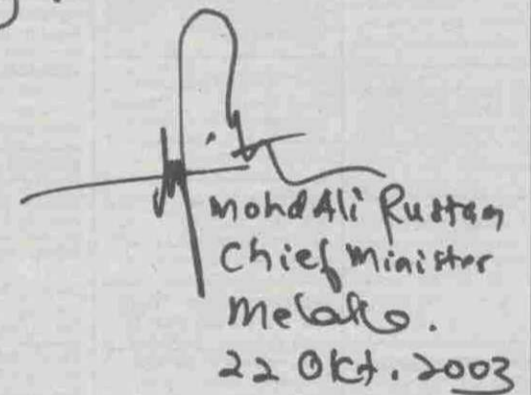 Mohd Ali Rustam
Chief Minister
Melaka.
22 Okt. 2003